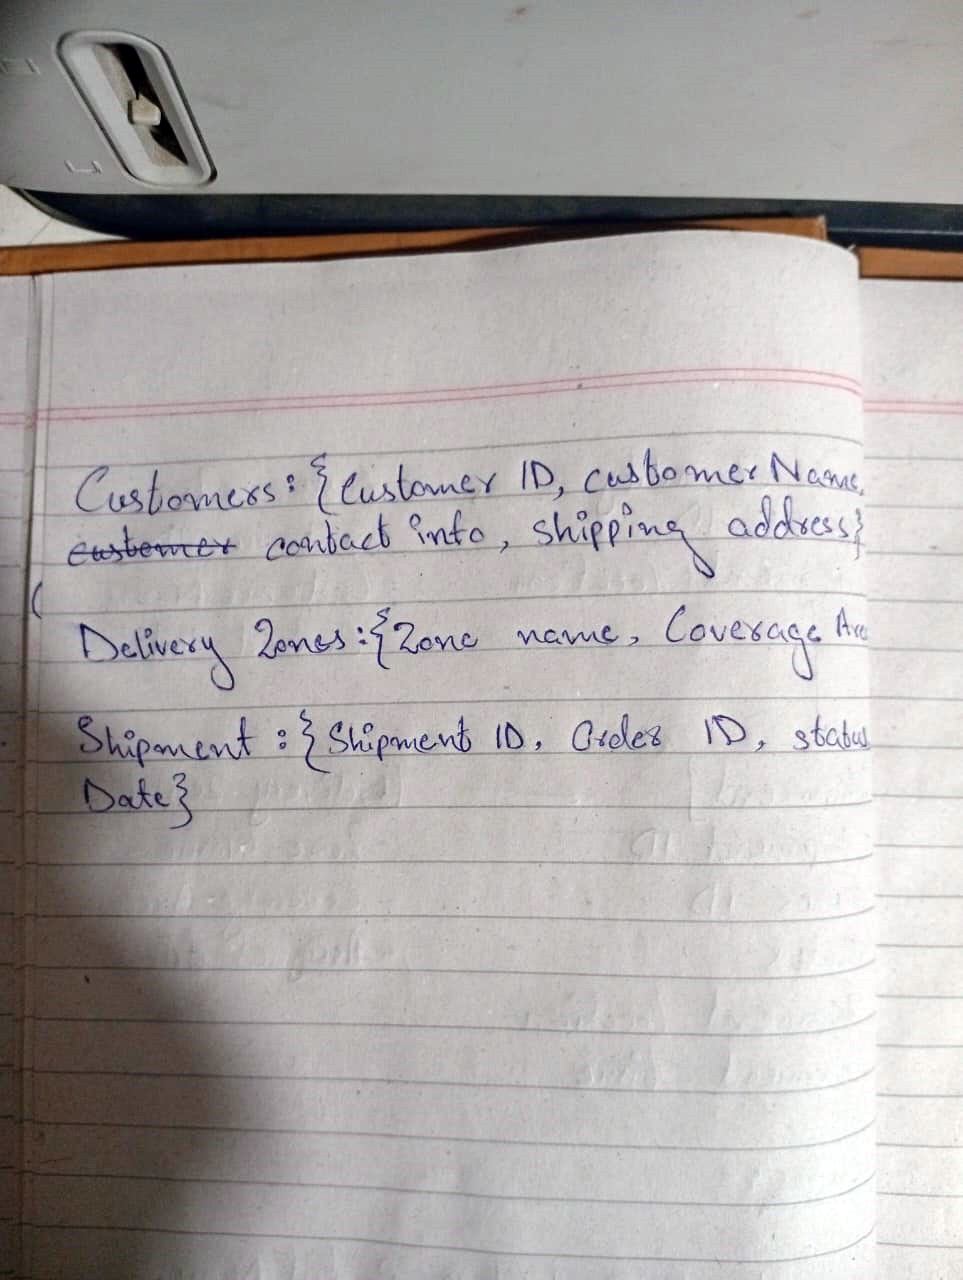 Customers: {Customer ID, customer Name,
customer contact info, shipping address}
Delivery Zones:{Zone name, Coverage Are
Shipment : {Shipment ID, Order ID, status
Date}